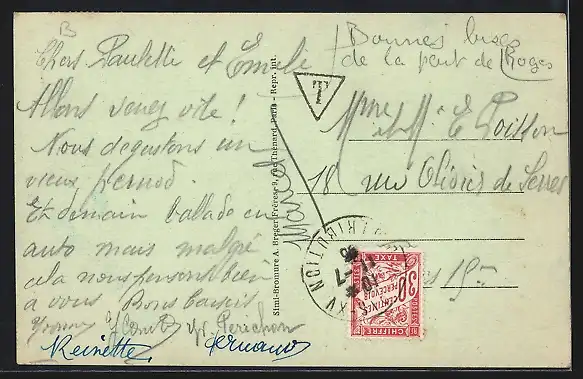 B
Chers Paulette et Emile
Allons venez vite !
Nous degustons un
vieux pernod.
Et demain ballade en
auto mais malgré
cela nous pensons bien
à vous Bons baisers
Yvonne
Reinette
Fernand
Marcel
Bonnes bises
de la part de Roger
T
Simi-Bromure A. Breger Frères 9, rue Thénard, Paris - Repr. int.
Mme et Mr E. Poisson
18 rue Olivier de Serres
Paris 15me
DISTRIBUTION
XV
CHIFFRE
30
CENTIMES
A PERCEVOIR
TAXE
POSTES